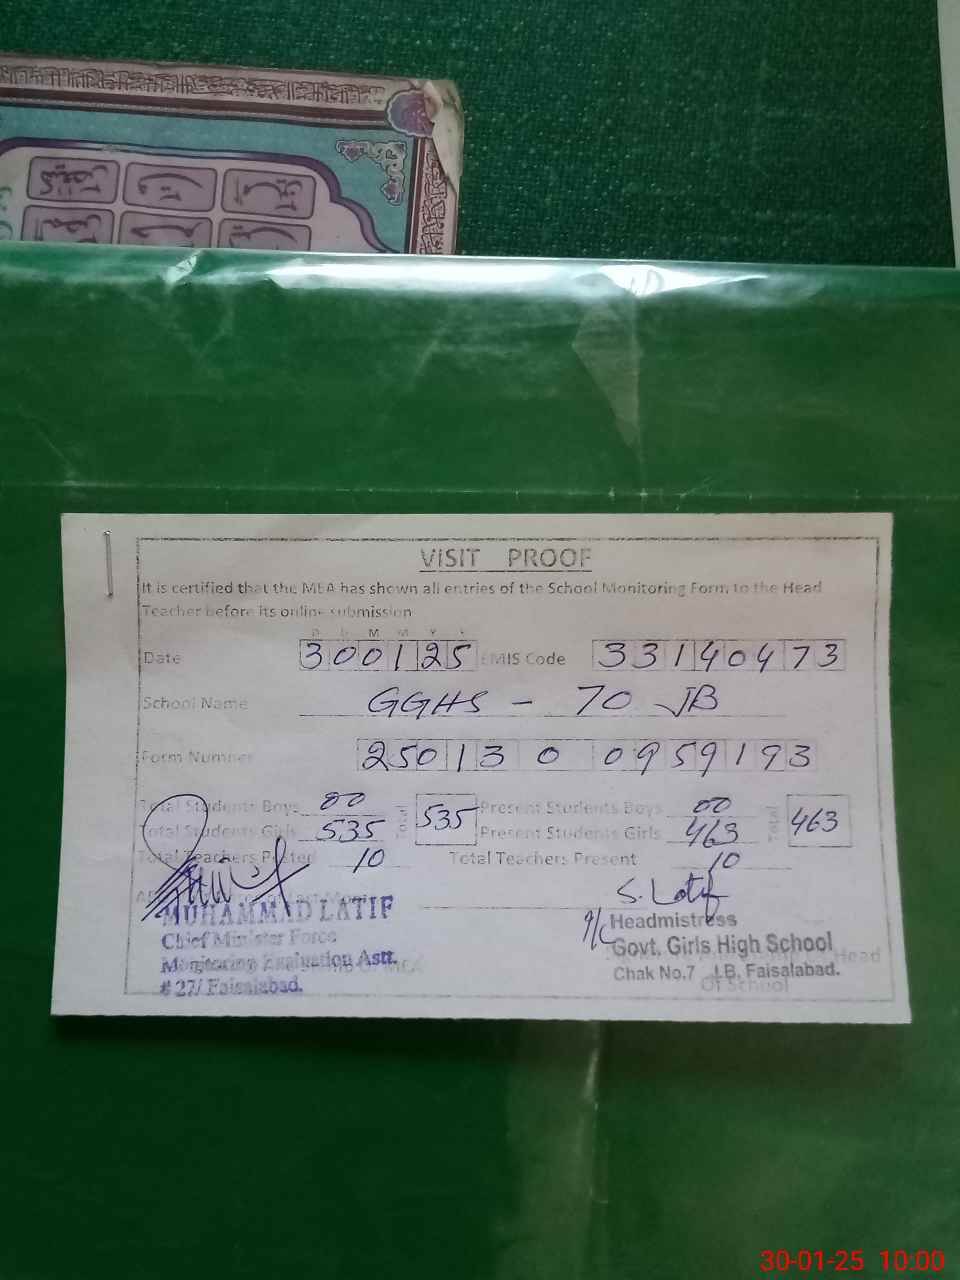 VISIT PROOF
It is certified that the MEA has shown all entries of the School Monitoring Form to the Head
Teacher before its online submission
D D M M Y Y
Date 300125 EMIS Code 33140473
School Name GGHS - 70 JB
Form Number 25013 0 0959193
Total Students Boys 00 Total 535 Present Students Boys 00 Total 463
Total Students Girls 535 Present Students Girls 463
Total Teachers Posted 10 Total Teachers Present 10
S. Latif
MUHAMMAD LATIF
Chief Minister Force
Monitoring Evaluation Astt.
# 27/ Faisalabad.
Headmistress
Govt. Girls High School
Chak No.7 JB, Faisalabad.
Head
Of School
30-01-25 10:00